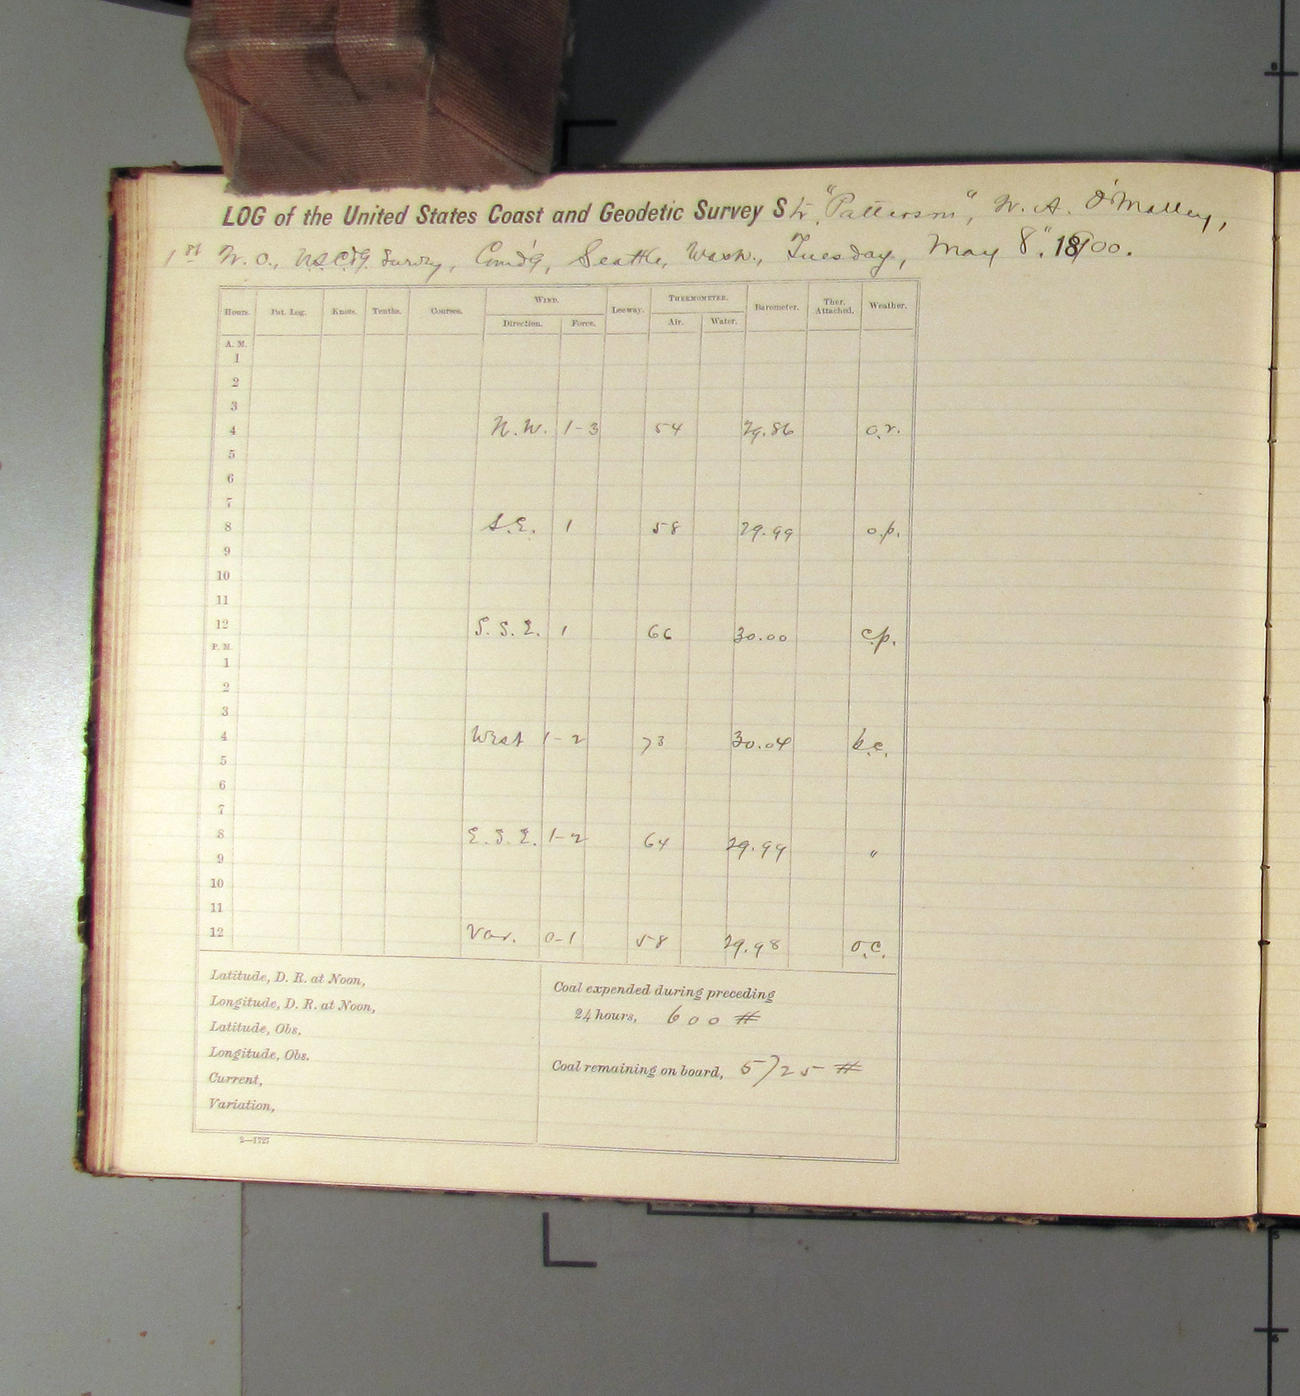 LOG of the United States Coast and Geodetic Survey Str. "Patterson", W. A. O'Malley,
1st W. O., U.S.C.&G. Survey, Com'd'g, Seattle, Wash., Tuesday, May 8", 1900.
Hours. Pat. Log. Knots. Tenths. Courses. WIND. Leeway. THERMOMETER. Barometer. Ther. Attached. Weather.
Direction. Force. Air. Water.
A. M.
1
2
3
4 N.W. 1-3 54 29.86 o.r.
5
6
7
8 S.E. 1 58 29.99 o.p.
9
10
11
12 S.S.E. 1 66 30.00 c.p.
P. M.
1
2
3
4 West 1-2 73 30.04 b.c.
5
6
7
8 E.S.E. 1-2 64 29.99 "
9
10
11
12 Var. 0-1 58 29.98 o.c.
Latitude, D. R. at Noon,
Longitude, D. R. at Noon,
Latitude, Obs.
Longitude, Obs.
Current,
Variation,
Coal expended during preceding
24 hours, 600 #
Coal remaining on board, 5725 #
2—1727